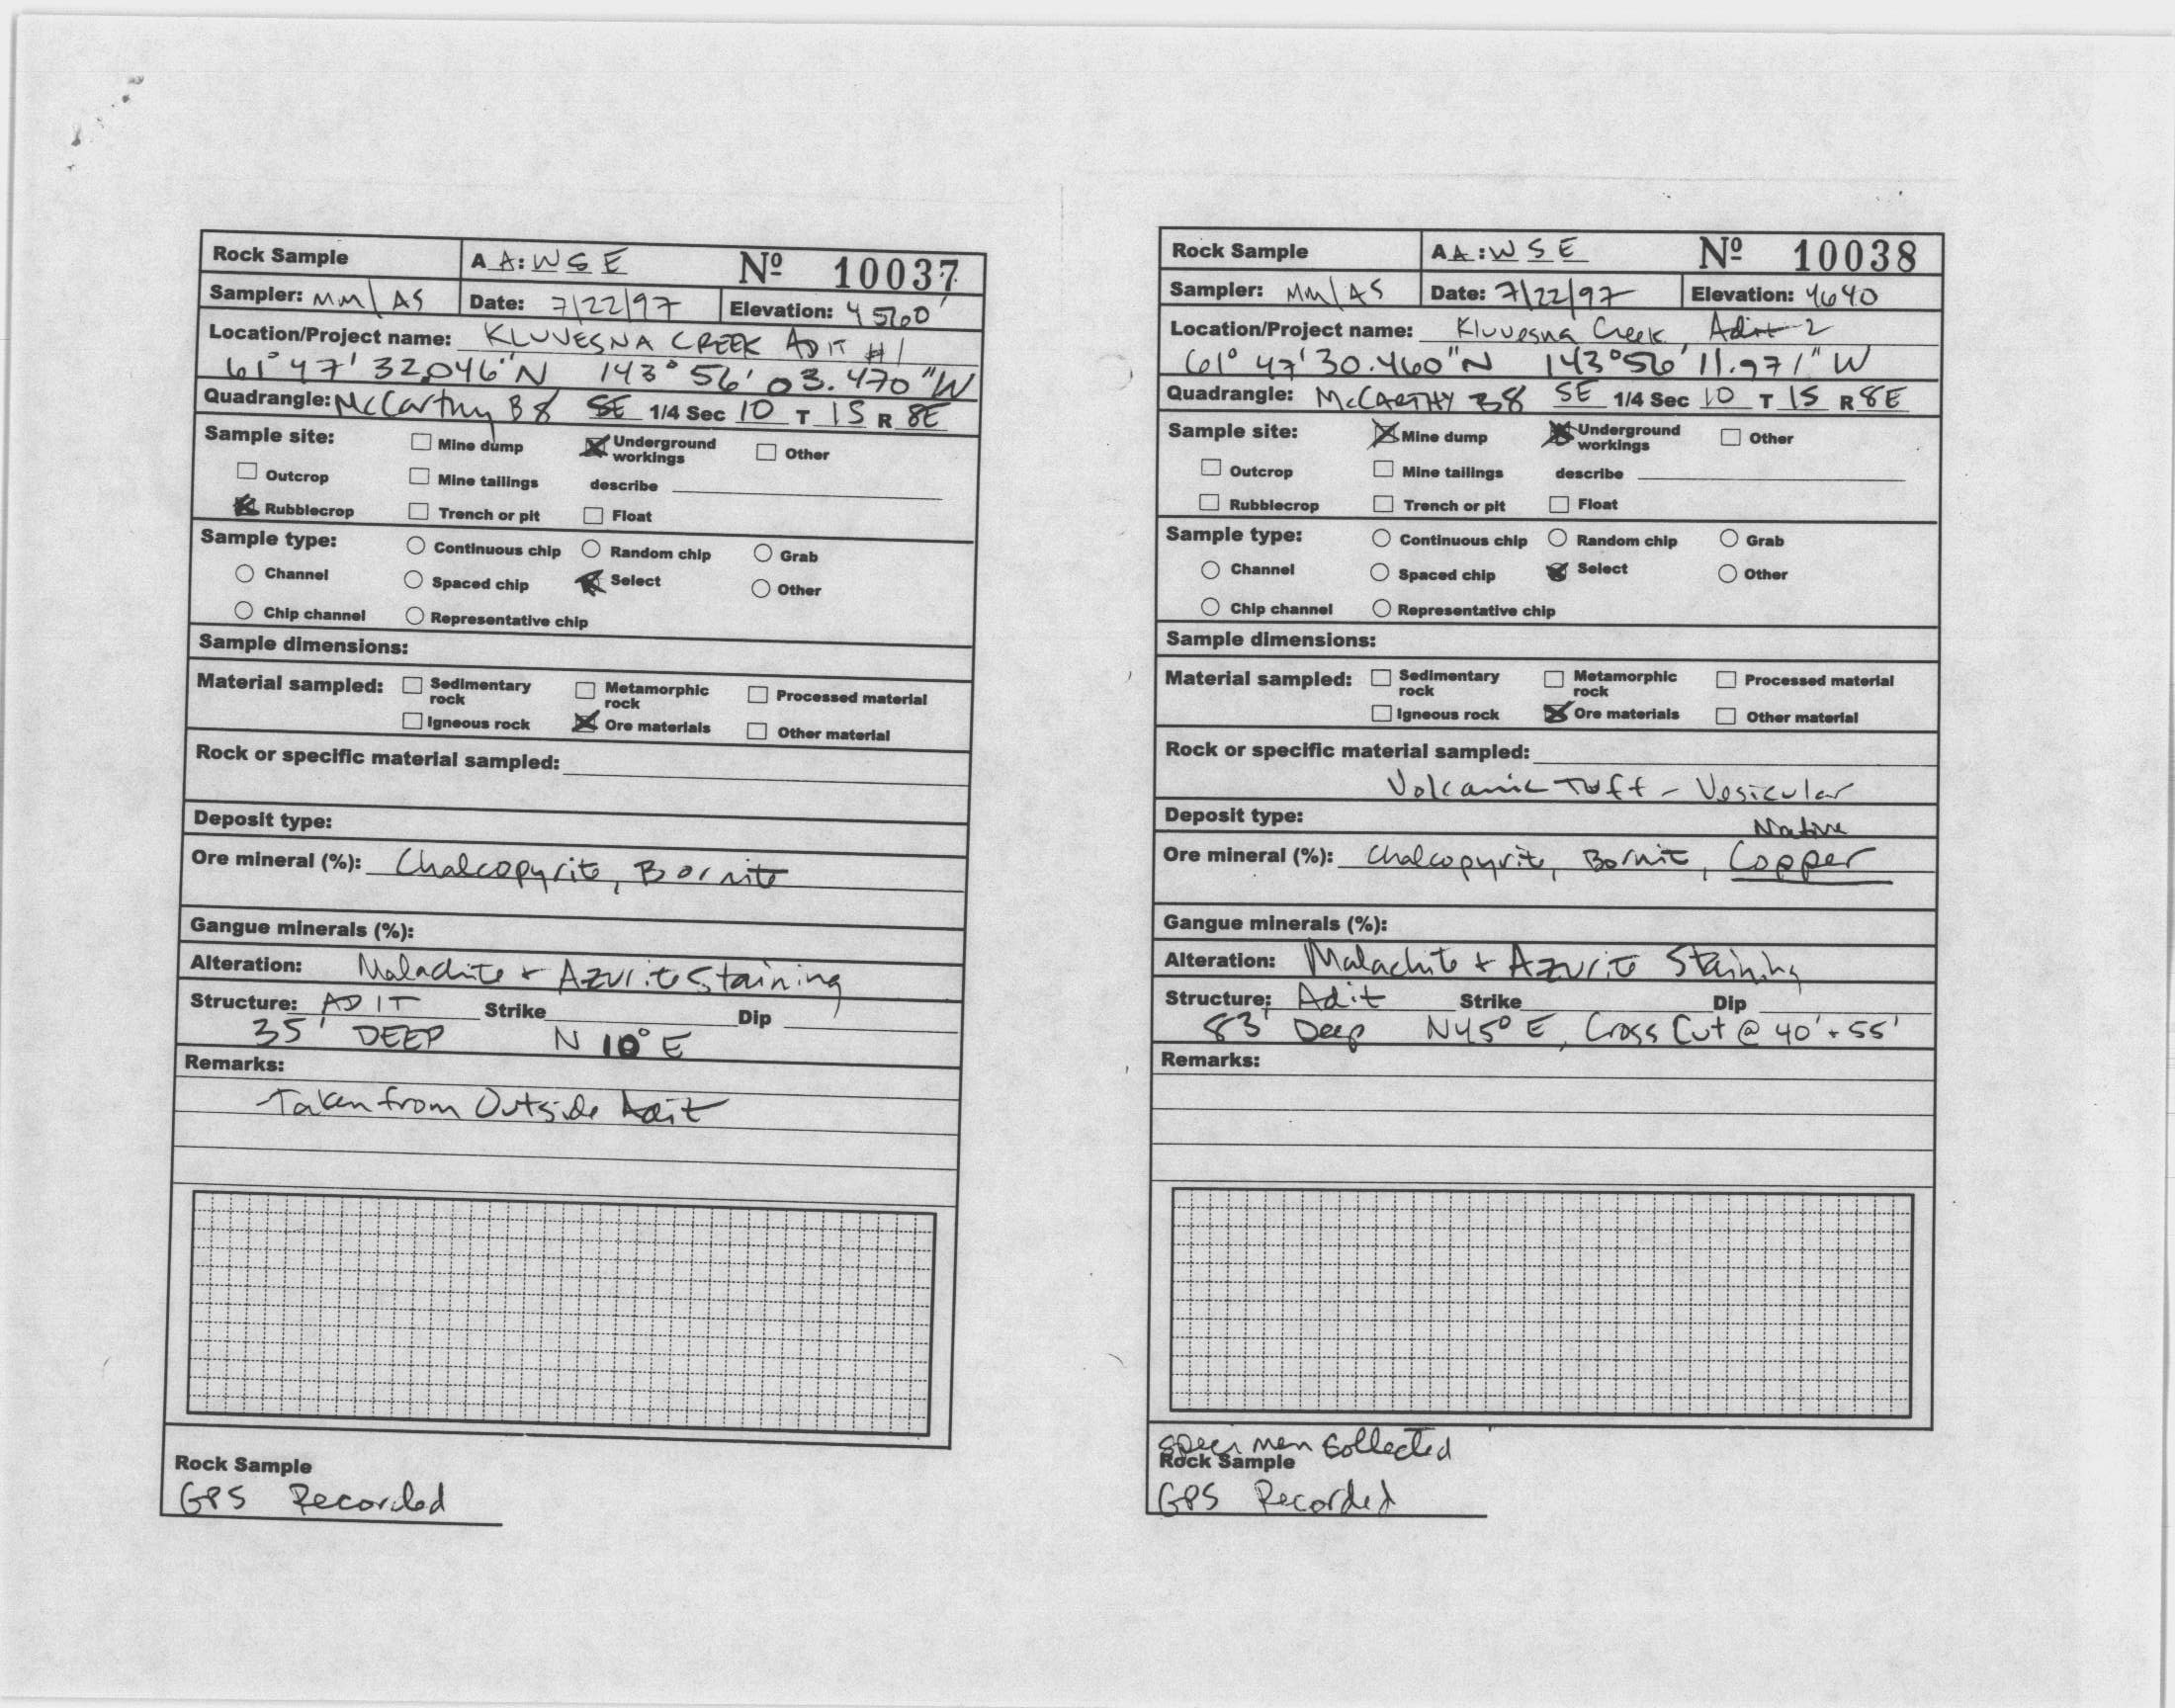 Rock Sample A A: W S E Nº 10037
Sampler: MM/AS Date: 7/22/97 Elevation: 4560'
Location/Project name: KLUVESNA CREEK ADIT #1
61° 47' 32.046" N 143° 56' 03.470" W
Quadrangle: McCarthy B8 SE 1/4 Sec 10 T 1S R 8E
Sample site: Mine dump Underground workings Other
Outcrop Mine tailings describe
Rubblecrop Trench or pit Float
Sample type: Continuous chip Random chip Grab
Channel Spaced chip Select Other
Chip channel Representative chip
Sample dimensions:
Material sampled: Sedimentary rock Metamorphic rock Processed material
Igneous rock Ore materials Other material
Rock or specific material sampled:
Deposit type:
Ore mineral (%): Chalcopyrite, Bornite
Gangue minerals (%):
Alteration: Malachite + Azurite Staining
Structure: ADIT Strike Dip
35' DEEP N 10° E
Remarks:
Taken from Outside Adit
Rock Sample
GPS Recorded
Rock Sample AA: W S E Nº 10038
Sampler: MM/AS Date: 7/22/97 Elevation: 4640
Location/Project name: Kluvesna Creek Adit 2
61° 47' 30.460" N 143° 56' 11.971" W
Quadrangle: McCARTHY B8 SE 1/4 Sec 10 T 1S R 8E
Sample site: Mine dump Underground workings Other
Outcrop Mine tailings describe
Rubblecrop Trench or pit Float
Sample type: Continuous chip Random chip Grab
Channel Spaced chip Select Other
Chip channel Representative chip
Sample dimensions:
Material sampled: Sedimentary rock Metamorphic rock Processed material
Igneous rock Ore materials Other material
Rock or specific material sampled:
Volcanic Tuff - Vesicular
Deposit type:
Native
Ore mineral (%): Chalcopyrite, Bornite, Copper
Gangue minerals (%):
Alteration: Malachite + Azurite Staining
Structure: Adit Strike Dip
83' Deep N45° E, Cross Cut @ 40' + 55'
Remarks:
Specimen Collected
Rock Sample
GPS Recorded